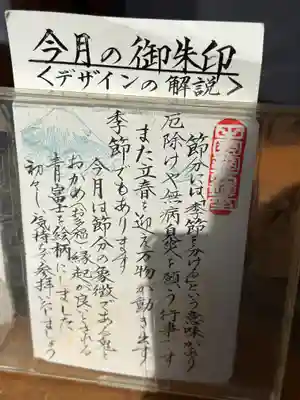 今月の御朱印
<デザインの解説>
節分には「季節を分ける」という意味があり
厄除けや無病息災を願う行事です
また立春を迎え万物が動き出す
季節でもあります
今月は節分の象徴である鬼と
おかめ(お多福)縁起が良いとされる
青富士を絵柄にしました
初々しい気持ちで参拝いたしましょう